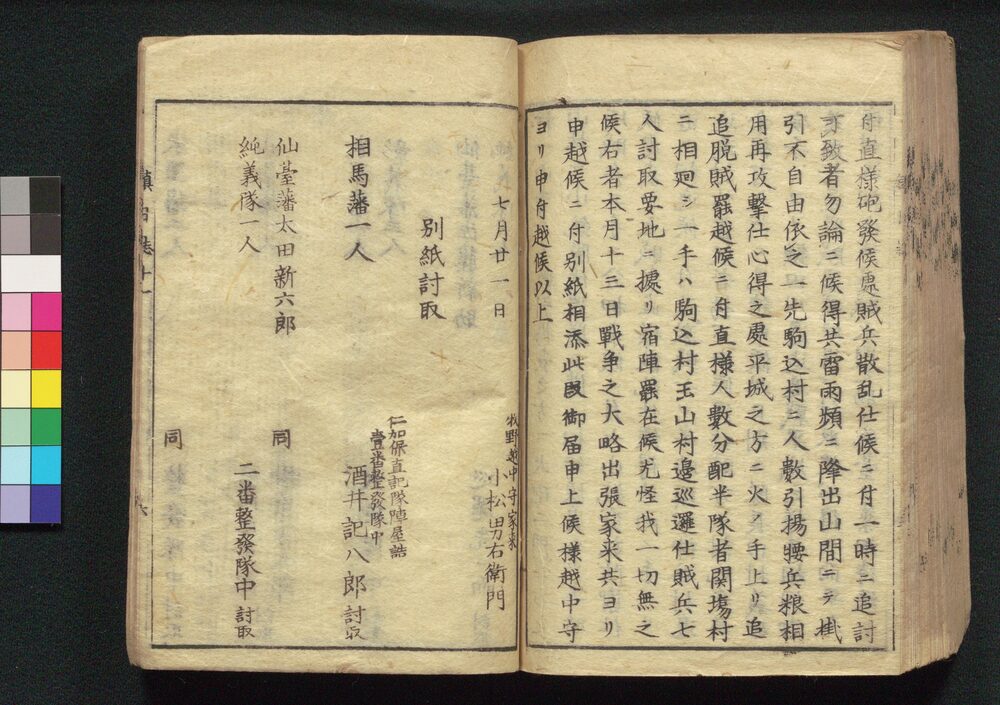 付直様砲發候處賊兵散乱仕候ニ付一時ニ追討
可致者勿論ニ候得共雷雨頻ニ降出山間ニテ掛
引不自由依之一先駒込村ニ人數引揚腰兵粮相
用再攻撃仕心得之處平城之方ニ火ノ手上リ追
追脱賊罷越候ニ付直様人數分配半隊者関塲村
ニ相廻シ一手ハ駒込村玉山村邊巡邏仕賊兵七
人討取要地ニ據リ宿陣罷在候尤怪我一切無之
候右者本月十三日戰争之大略出張家来共ヨリ
申越候ニ付別紙相添此段御届申上候様越中守
ヨリ申付越候以上
七月廿一日
牧野越中守家来
小松男右衛門
別紙討取
仁加保直記隊陣屋詰
壹番整發隊中
相馬藩一人
酒井記八郎討取
仙臺藩太田新六郎
同
純義隊一人
二番整發隊中討取
同
鎮台誌十一
六